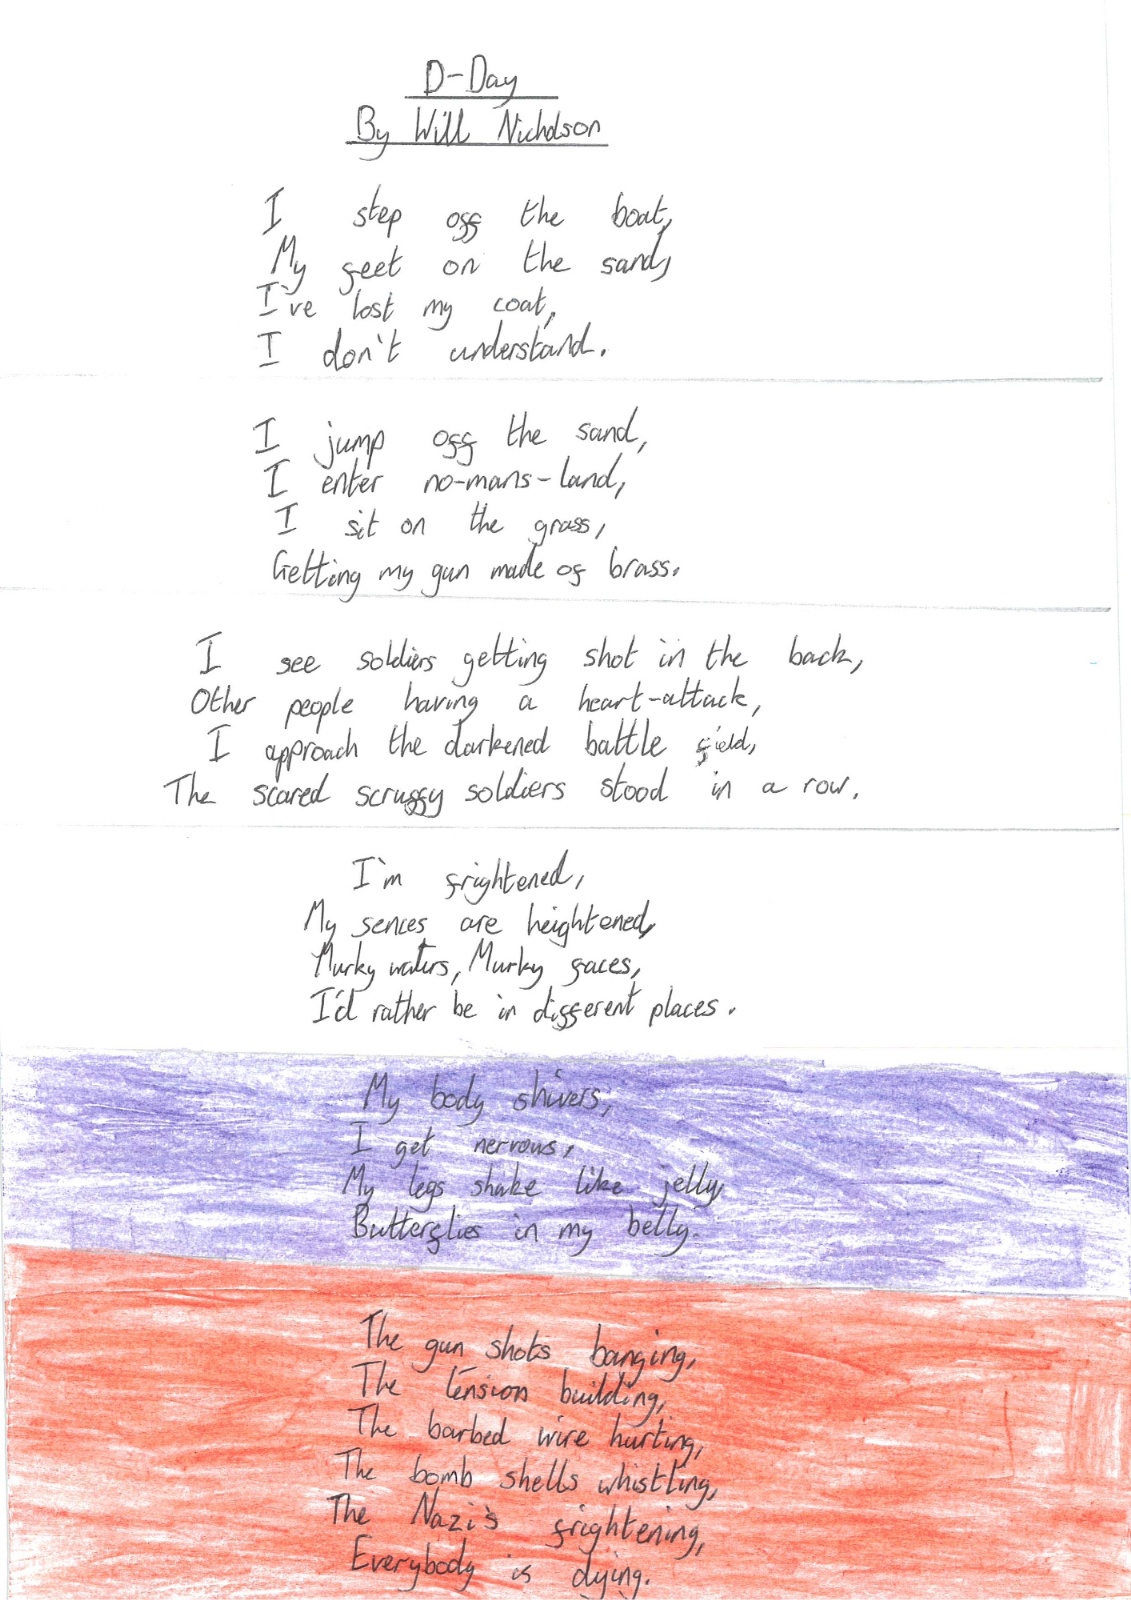 D-Day
By Will Nicholson
I step off the boat,
My feet on the sand,
I've lost my coat,
I don't understand.
I jump off the sand,
I enter no-mans-land,
I sit on the grass,
Getting my gun made of brass.
I see soldiers getting shot in the back,
Other people having a heart-attack,
I approach the darkened battle field,
The scared scruffy soldiers stood in a row.
I'm frightened,
My sences are heightened,
Murky waters, Murky faces,
I'd rather be in different places.
My body shivers,
I get nervous,
My legs shake like jelly,
Butterflies in my belly.
The gun shots banging,
The tension building,
The barbed wire hurting,
The bomb shells whistling,
The Nazi's frightening,
Everybody is dying.